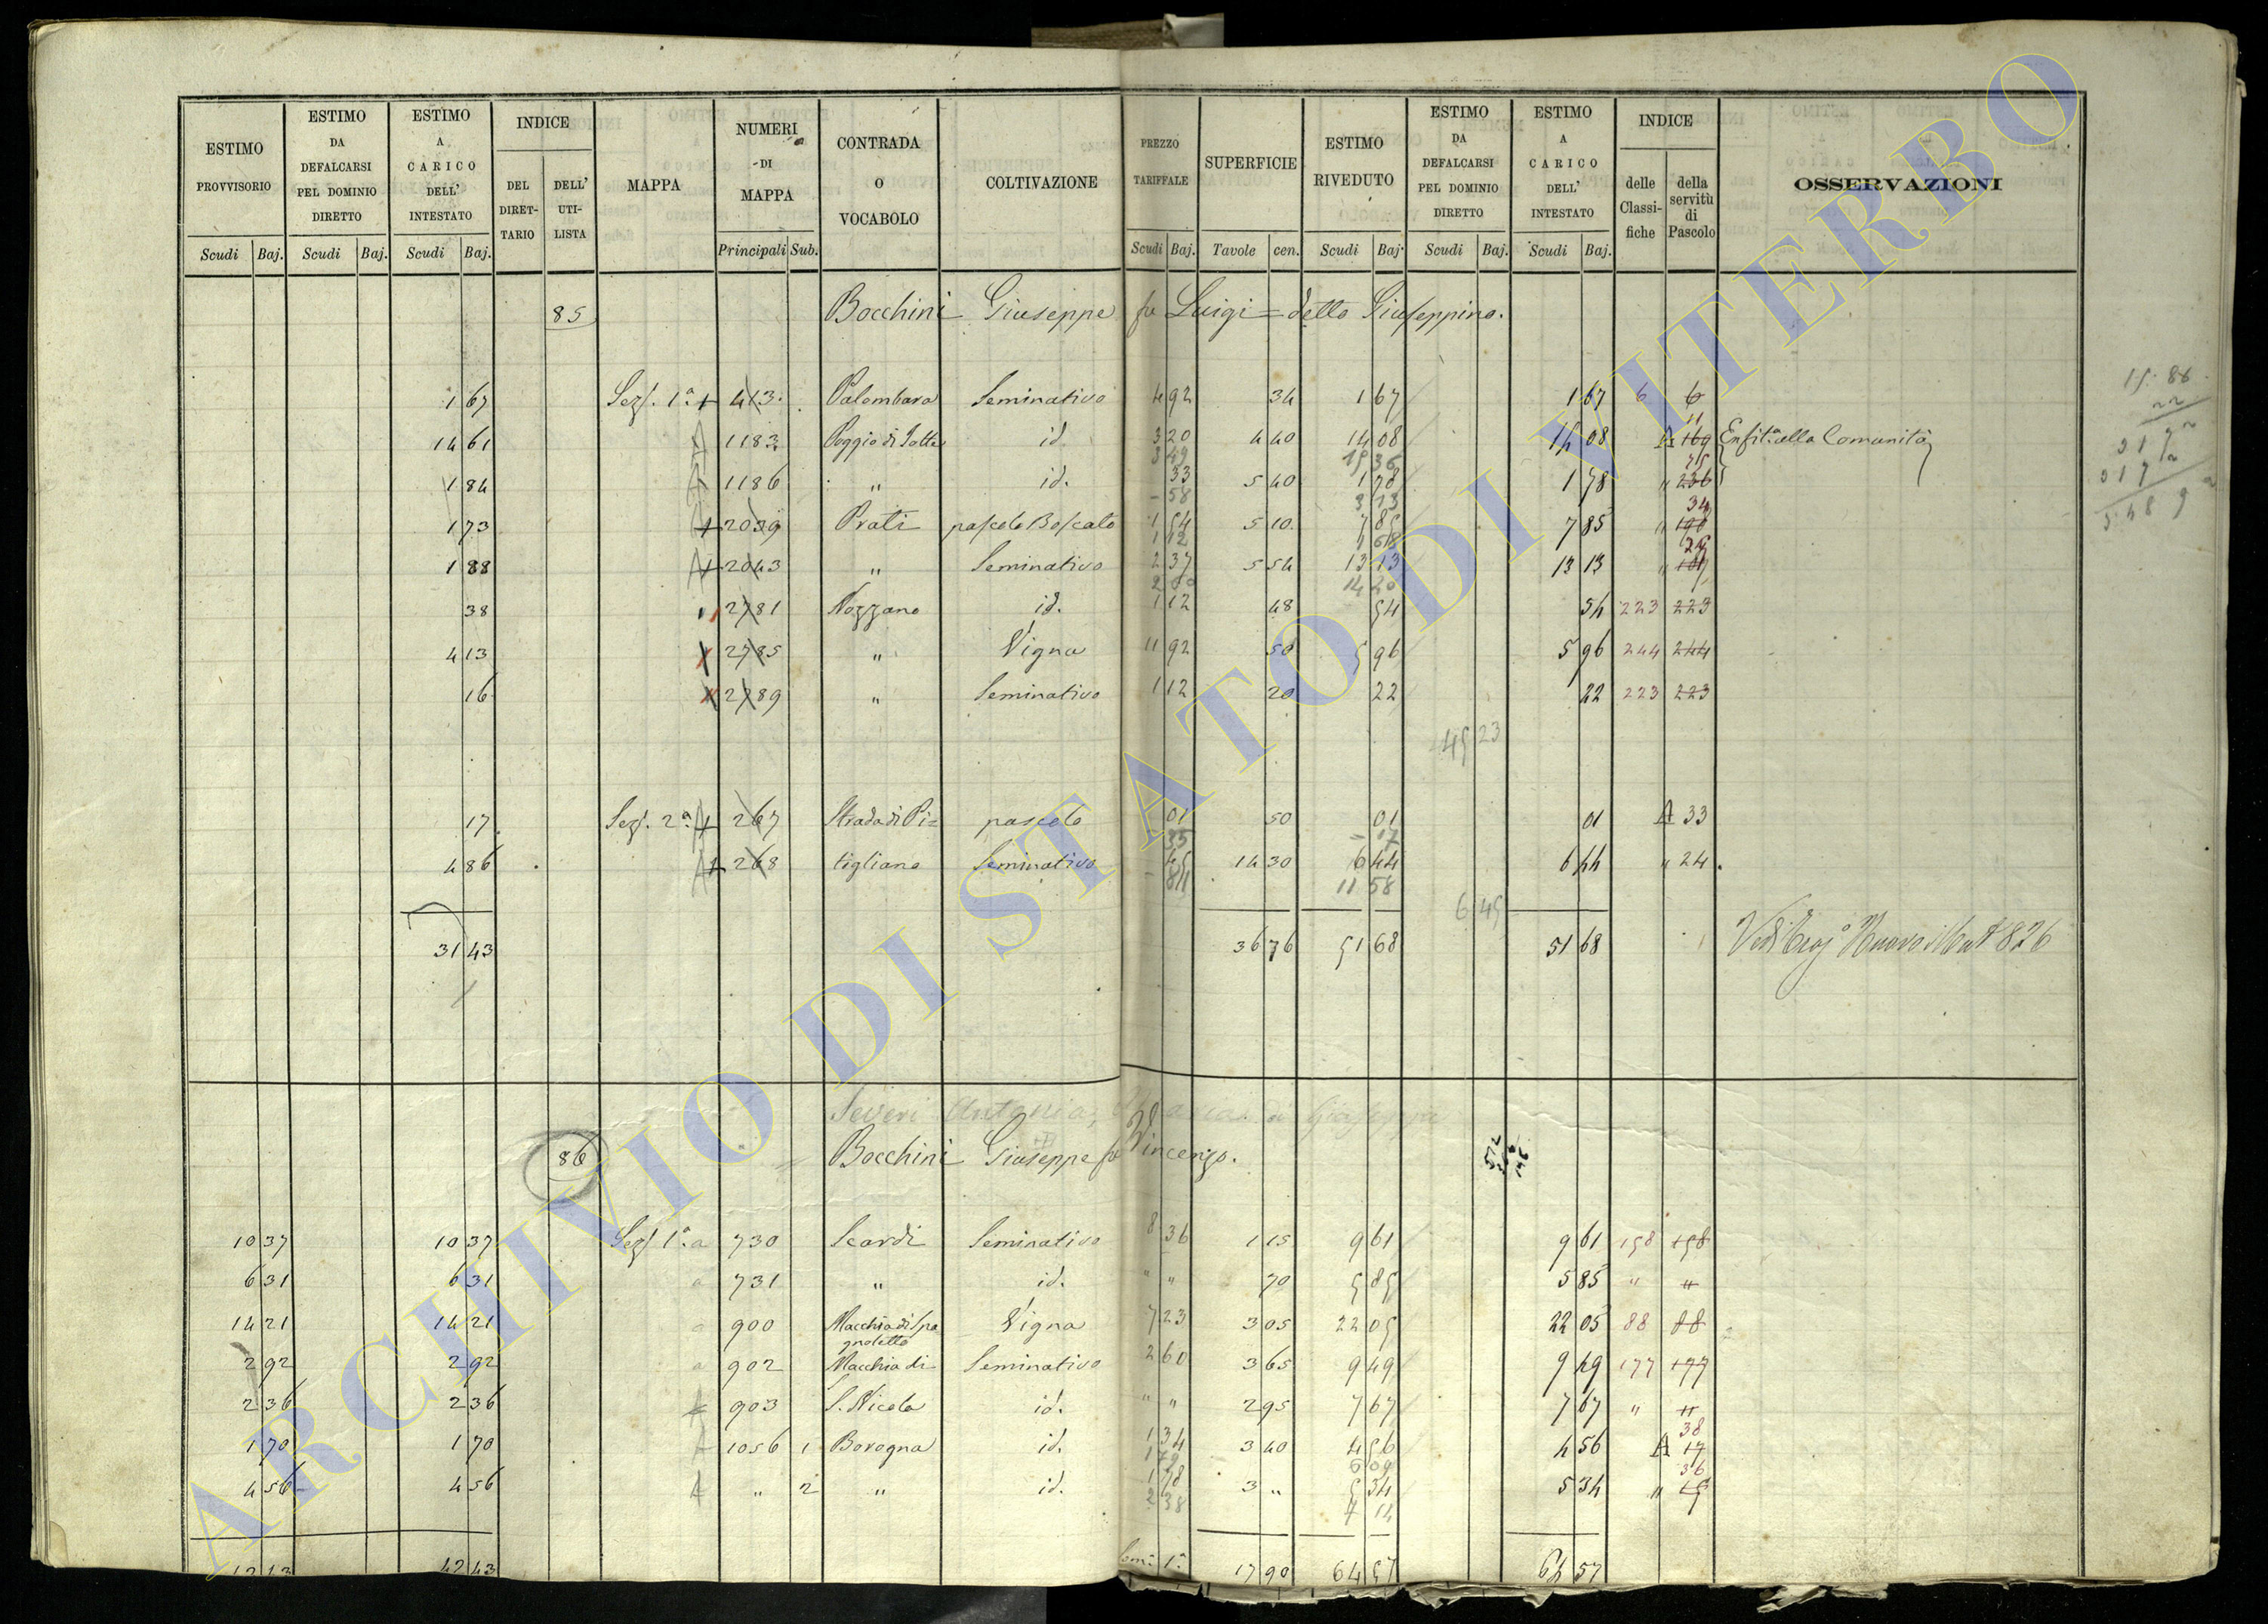 ESTIMO PROVVISORIO Scudi Baj.
ESTIMO DA DEFALCARSI PEL DOMINIO DIRETTO Scudi Baj.
ESTIMO A CARICO DELL' INTESTATO Scudi Baj.
INDICE DEL DIRET-TARIO DELL' UTI-LISTA
MAPPA
NUMERI DI MAPPA Principali Sub.
CONTRADA O VOCABOLO
COLTIVAZIONE
PREZZO TARIFFALE Scudi Baj.
SUPERFICIE Tavole cen.
ESTIMO RIVEDUTO Scudi Baj.
ESTIMO DA DEFALCARSI PEL DOMINIO DIRETTO Scudi Baj.
ESTIMO A CARICO DELL' INTESTATO Scudi Baj.
INDICE delle Classi-fiche della servitù di Pascolo
OSSERVAZIONI
85 Bocchini Giuseppe fu Luigi = detto Giuseppino.
1 67 Sez. 1ª 413 Palombara Seminativo 4 92 34 1 67 1 67 6 6
14 61 1183 Poggio di Sotto id. 3 20 4 40 14 08 14 08 A 169 11 Enfit. alla Comunità
3 49 15 36
1 84 1186 " id. 33 5 40 1 78 1 78 " 236 75
- 58 3 13
1 73 2039 Prati pascolo Boscato 1 54 5 10 7 85 7 85 " 198 34
1 12
1 88 2043 " Seminativo 2 37 5 54 13 13 13 13 "
14 20
38 2781 Nozzano id. 1 12 48 54 54 223 223
4 13 2785 " Vigna 11 92 50 5 96 5 96 244 244
16 2789 " Seminativo 1 12 20 22 22 223 223
45 23
17 Sez. 2ª 267 Strada di Pi= pascolo 01 50 01 01 A 33
35 - 17
4 86 268 tigliano Seminativo 45 14 30 6 44 6 44 " 24
- 81 11 58
6 45
31 43 36 76 51 68 51 68
Severi Antonia
86 Bocchini Giuseppe fu Vincenzo.
10 37 10 37 Sez. 1ª a 730 Scardi Seminativo 8 36 1 15 9 61 9 61 158 158
6 31 6 31 a 731 " id. " " 70 5 85 5 85 " "
14 21 14 21 a 900 Macchia di Spa Vigna 7 23 3 05 22 05 22 05 88 88
gnoletto
2 92 2 92 a 902 Macchia di Seminativo 2 60 3 65 9 49 9 49 177 177
2 36 2 36 903 S. Nicola id. " " 2 95 7 67 7 67 " "
1 70 1 70 1056 1 Borogna id. 1 34 3 40 4 56 4 56 A 17 38
1 79 6 09
4 56 4 56 " 2 " id. 1 78 3 " 5 34 5 34 " 15 36
2 38 7 14
42 43 17 90 64 57 64 57
ARCHIVIO DI STATO DI VITERBO